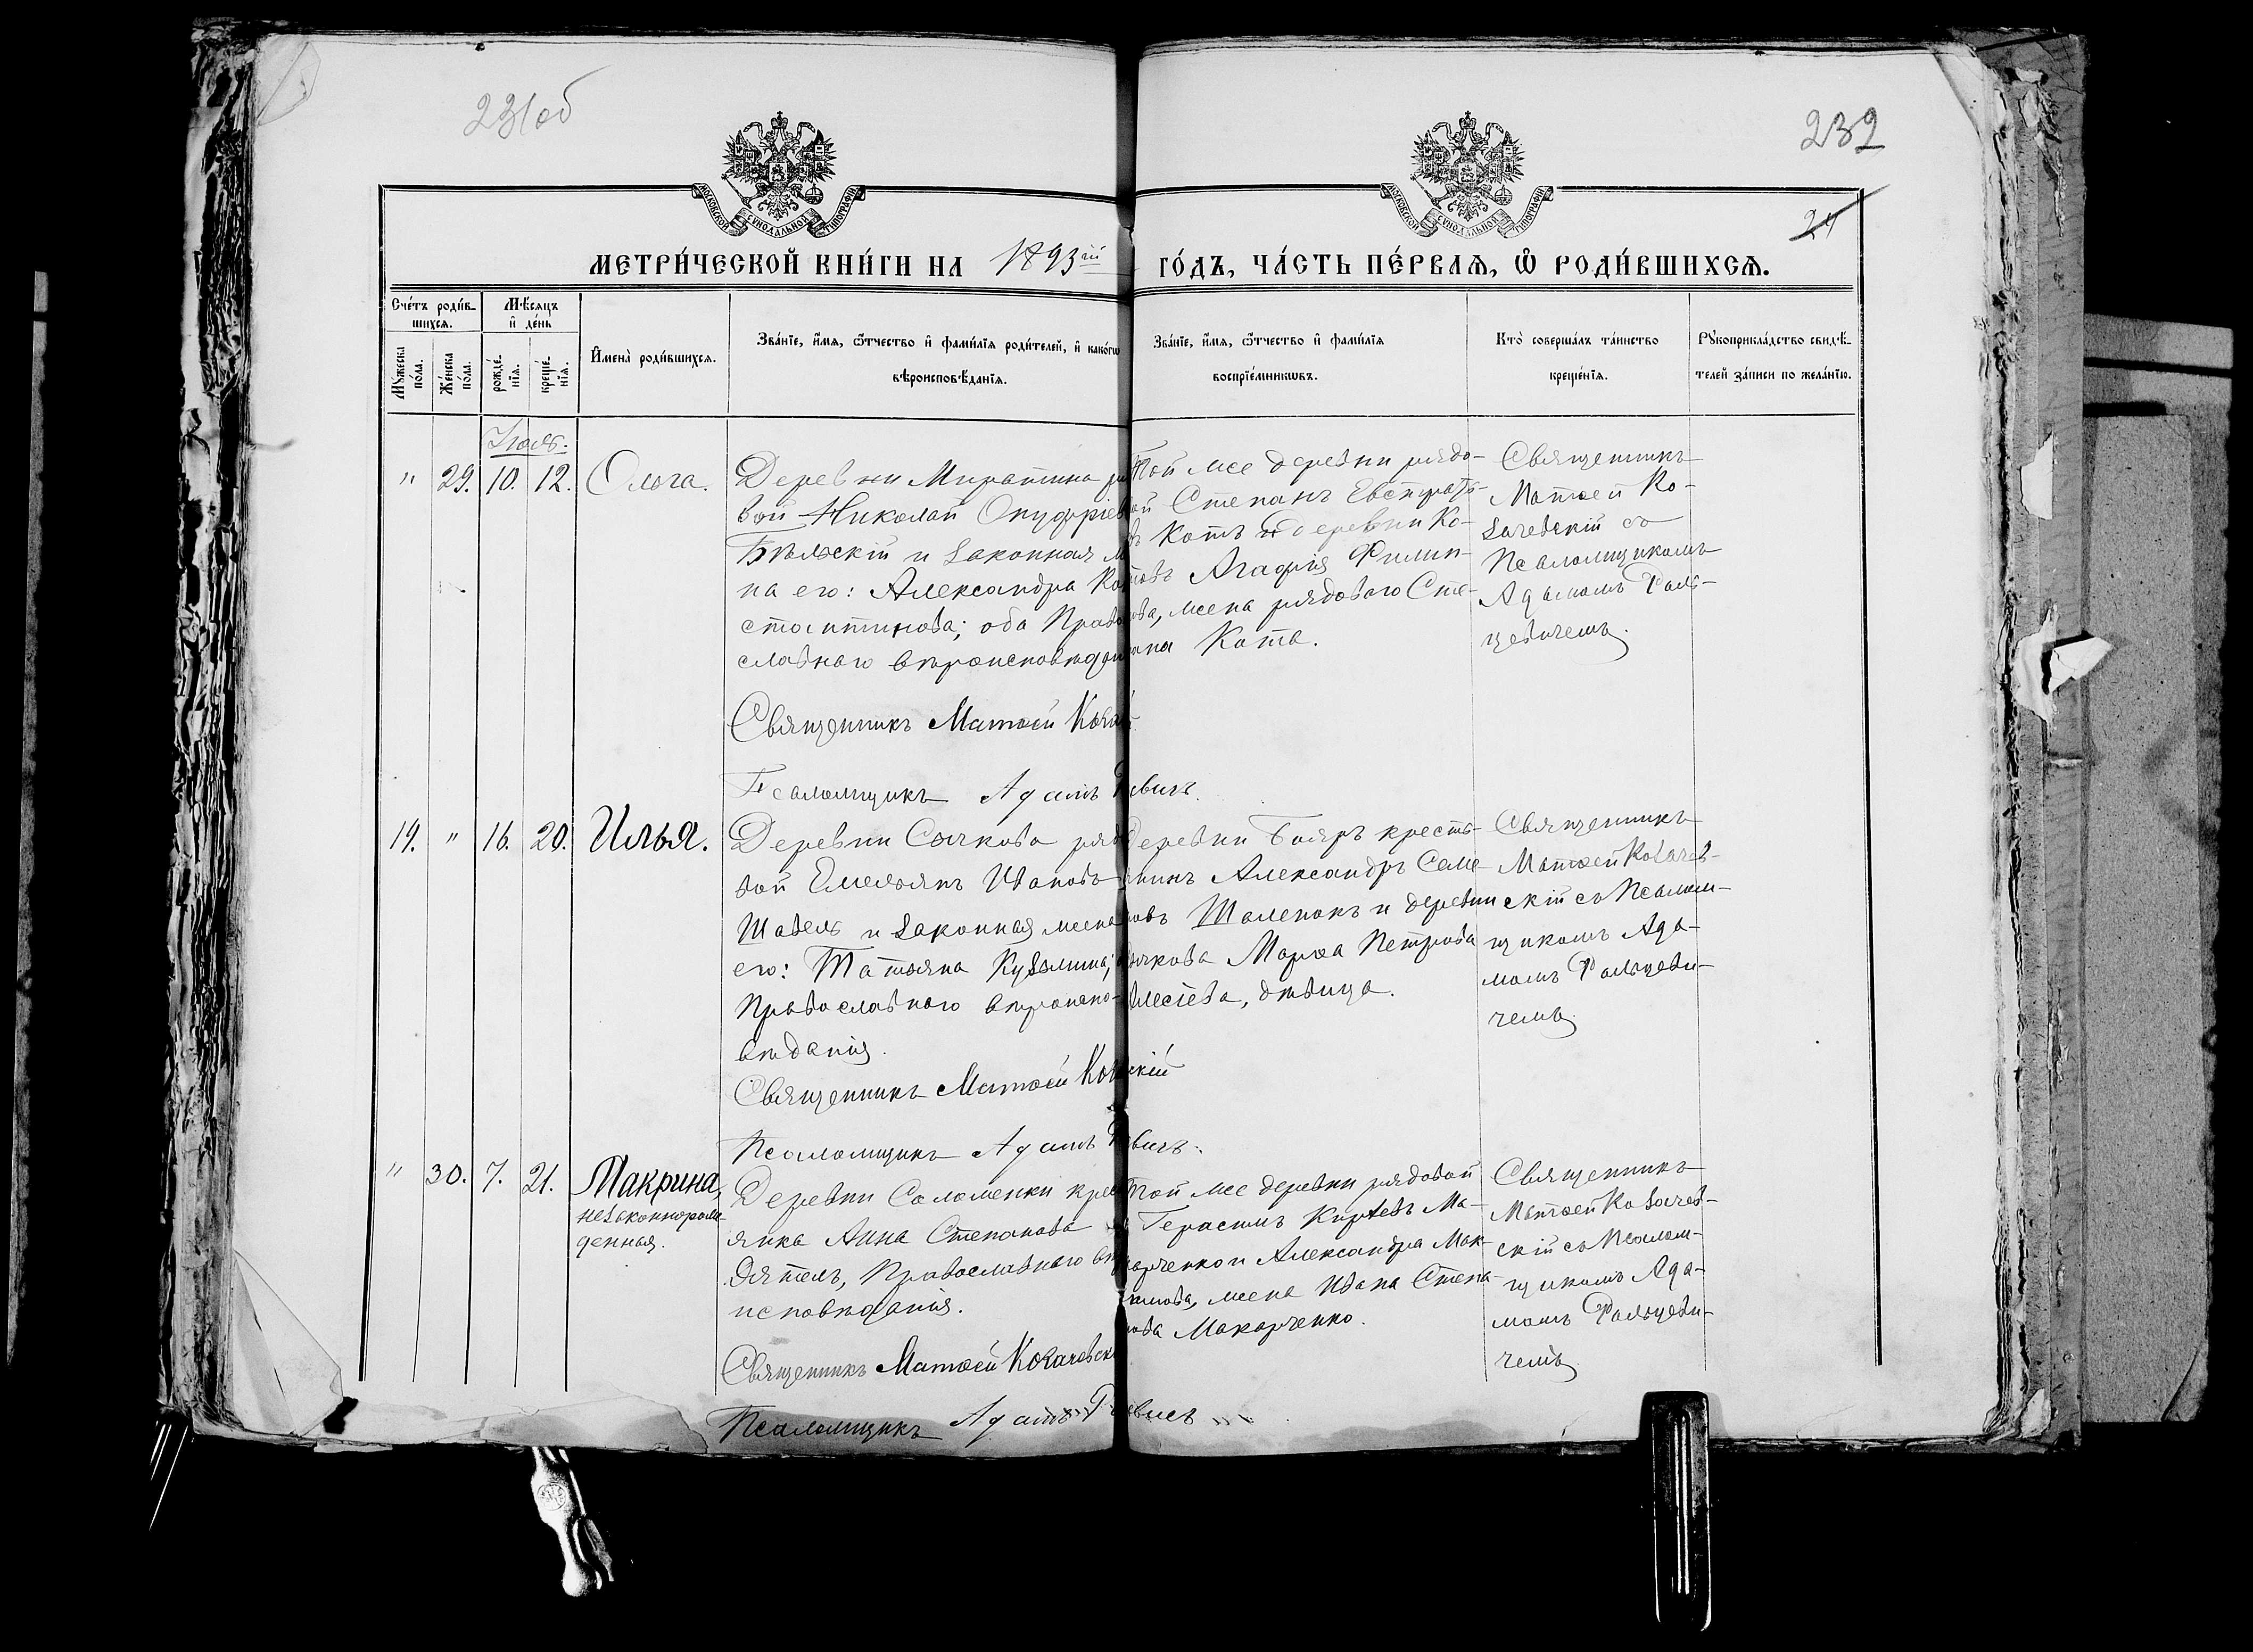 231об
232
24
МОСКОВСКОЙ СУНОДАЛЬНОЙ ТИПОГРАФІИ
МОСКОВСКОЙ СУНОДАЛЬНОЙ ТИПОГРАФІИ
МЕТРИ́ЧЕСКОЙ КНИ́ГИ НА 1893ій ГО́ДЪ, ЧА́СТЬ ПЕ́РВАЯ, Ѡ РОДИ́ВШИХСЯ.
Сче́тъ роди́в-
шихся.
Мѣ́сяцъ
и҆ де́нь
Мꙋ́жеска
по́ла.
Же́нска
по́ла.
рожде́-
нїя.
креще́-
нїя.
И҆мена̀ роди́вшихся.
Зва́нїе, и҆́мя, ѻ҆́тчество и҆ фами́лїя роди́телей, и҆ како́гѡ
вѣроисповѣ́данїя.
Зва́нїе, и҆́мя, ѻ҆́тчество и҆ фами́лїя
воспрїе́мникѡвъ.
Кто̀ соверша́лъ та́инство
креще́нїя.
Рꙋкоприкла́дство свидѣ́-
телей за́писи по жела́нїю.
Іюль.
" 29. 10. 12. Ольга.
Деревни Миратина ря
вой Николай Онуфріев
Бѣльскій и законная
на его: Александра Ко
стантинова; оба Право
славнаго вѣроисповѣдан
Священникъ Матѳей Коза
Псаломщикъ Адамъ
евичъ.
Той же деревни рядо-
вой Степанъ Евстрать-
въ Котъ и деревни Ко-
товъ Агафія Филип-
ова, жена рядового Сте-
пана Кота.
Священникъ
Матѳей Ко-
зачевскій съ
Псаломщикомъ
Адамомъ Раль-
цевичемъ.
19. " 16. 20. Илья.
Деревни Сычкова рядо
вой Емельянъ Ивановъ
Шавель и законная жена
его: Татьяна Кузьмина;
Православнаго вѣроиспо-
вѣданія.
Священникъ Матѳей Коз
скій
Псаломщикъ Адамъ
евичъ.
Деревни Бояръ кресть-
янинъ Александръ Семе-
новъ Шаленокъ и деревни
Сычкова Марѳа Петрова
дѣвица.
Священникъ
Матѳей Козачев-
скій съ Псалом-
щикомъ Ада-
момъ Ральцеви-
чемъ.
" 30. 7. 21. Макрина,
незаконнорож-
денная.
Деревни Соломенки крес
янка Анна Степанова
Дятель, Православнаго вѣ
исповѣданія.
Священникъ Матѳей Козачевск
Псаломщикъ Адамъ
евичъ
Той же деревни рядовой
Герасимъ Киреевъ Ма-
карченко и Александра Мак-
симова, жена Ивана Степа-
нова Макарченко.
Священникъ
Матѳей Козачев-
скій съ Псалом-
щикомъ Ада-
момъ Ральцеви-
чемъ